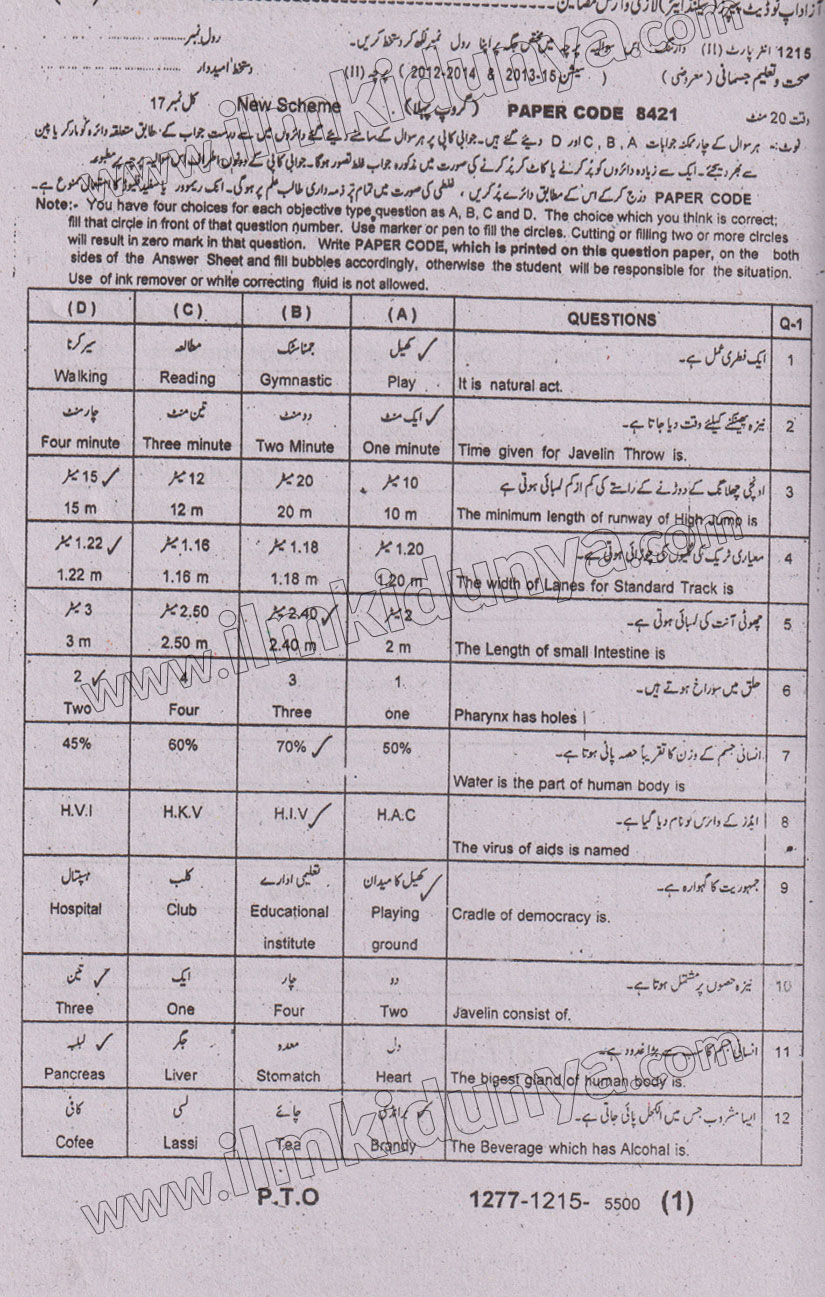 1215 انٹر پارٹ (II) وارننگ:۔ اس سوالیہ پرچہ میں مختص جگہ پر اپنا رول نمبر لکھ کر دستخط کریں۔ رول نمبر
صحت و تعلیم جسمانی (معروضی) (سیشن 2013-15 & 2012-2014) پرچہ (II) دستخط امیدوار
وقت 20 منٹ PAPER CODE 8421 (گروپ پہلا) New Scheme کل نمبر 17
نوٹ:۔ ہر سوال کے چار ممکنہ جوابات A , B , C اور D دیئے گئے ہیں۔ جوابی کاپی پر ہر سوال کے سامنے دیئے گئے دائروں میں سے درست جواب کے مطابق متعلقہ دائرہ کو مارکر یا پین
سے بھر دیجئے۔ ایک سے زیادہ دائروں کو پُر کرنے یا کاٹ کر پُر کرنے کی صورت میں مذکورہ جواب غلط تصور ہوگا۔ جوابی کاپی کے دونوں اطراف اس سوالیہ پرچہ پر مطبوعہ
PAPER CODE درج کر کے اس کے مطابق دائرے پُر کریں، غلطی کی صورت میں تمام تر ذمہ داری طالب علم پر ہوگی۔ انک ریموور یا سفید فلیوڈ کا استعمال ممنوع ہے۔
Note:- You have four choices for each objective type question as A, B, C and D. The choice which you think is correct;
fill that circle in front of that question number. Use marker or pen to fill the circles. Cutting or filling two or more circles
will result in zero mark in that question. Write PAPER CODE, which is printed on this question paper, on the both
sides of the Answer Sheet and fill bubbles accordingly, otherwise the student will be responsible for the situation.
Use of ink remover or white correcting fluid is not allowed.
(D) (C) (B) (A) QUESTIONS Q-1
سیر کرنا مطالعہ جمناسٹک کھیل ✓ ایک فطری عمل ہے۔ 1
Walking Reading Gymnastic Play It is natural act.
چار منٹ تین منٹ دو منٹ ایک منٹ ✓ نیزہ پھینکنے کیلئے وقت دیا جاتا ہے۔ 2
Four minute Three minute Two Minute One minute Time given for Javelin Throw is.
15 میٹر ✓ 12 میٹر 20 میٹر 10 میٹر اونچی چھلانگ کے دوڑنے کے راستے کی کم از کم لمبائی ہوتی ہے 3
15 m 12 m 20 m 10 m The minimum length of runway of High Jump is
1.22 میٹر ✓ 1.16 میٹر 1.18 میٹر 1.20 میٹر معیاری ٹریک کی گلیوں کی چوڑائی ہوتی ہے۔ 4
1.22 m 1.16 m 1.18 m 1.20 m The width of Lanes for Standard Track is
3 میٹر 2.50 میٹر 2.40 میٹر ✓ 2 میٹر چھوٹی آنت کی لمبائی ہوتی ہے۔ 5
3 m 2.50 m 2.40 m 2 m The Length of small Intestine is
2 ✓ 4 3 1 حلق میں سوراخ ہوتے ہیں۔ 6
Two Four Three one Pharynx has holes
45% 60% 70% ✓ 50% انسانی جسم کے وزن کا تقریباً حصہ پانی ہوتا ہے۔ 7
Water is the part of human body is
H.V.I H.K.V H.I.V ✓ H.A.C ایڈز کے وائرس کو نام دیا گیا ہے۔ 8
The virus of aids is named
ہسپتال کلب تعلیمی ادارے کھیل کا میدان ✓ جمہوریت کا گہوارہ ہے۔ 9
Hospital Club Educational Playing Cradle of democracy is.
institute ground
تین ✓ ایک چار دو نیزہ حصوں پر مشتمل ہوتا ہے۔ 10
Three One Four Two Javelin consist of.
لبلبہ ✓ جگر معدہ دل انسانی جسم کا سب سے بڑا غدود ہے۔ 11
Pancreas Liver Stomatch Heart The bigest gland of human body is.
کافی لسی چائے برانڈی ایسا مشروب جس میں الکحل پائی جاتی ہے۔ 12
Cofee Lassi Tea Brandy The Beverage which has Alcohal is.
P.T.O 1277-1215- 5500 (1)
www.ilmkidunya.com
www.ilmkidunya.com
www.ilmkidunya.com